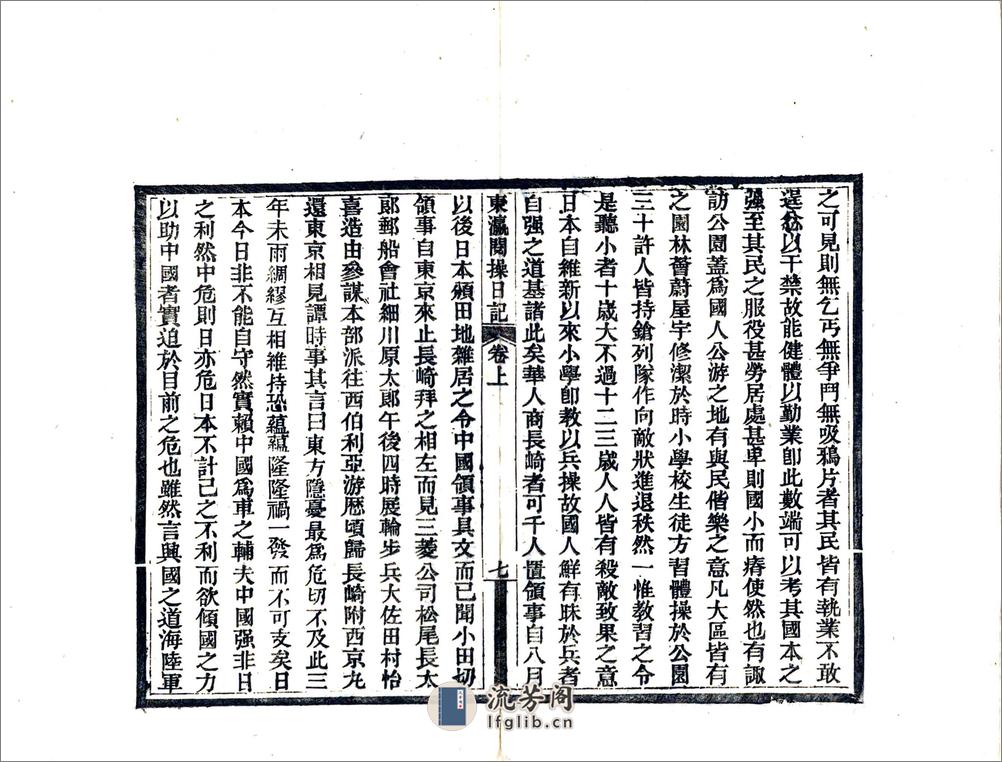 之可見則無乞丐無爭鬥無吸鴉片者其民皆有執業不敢
逞忿以干禁故能健體以勤業卽此數端可以考其國本之
强至其民之服役甚勞居處甚卑則國小而瘠使然也有諏
訪公園蓋爲國人公游之地有與民偕樂之意凡大區皆有
之園林薈蔚屋宇修潔於時小學校生徒方習體操於公園
三十許人皆持鎗列隊作向敵狀進退秩然一惟教習之令
是聽小者十歲大不過十二三歲人人皆有殺敵致果之意
日本自維新以來小學卽教以兵操故國人鮮有昧於兵者
自强之道基諸此矣華人商長崎者可千人置領事自八月
東瀛閱操日記 卷上 七
以後日本頒田地雜居之令中國領事具文而已聞小田切
領事自東京來止長崎拜之相左而見三菱公司松尾長太
郞郵船會社細川原太郞午後四時展輪步兵大佐田村怡
喜造由參謀本部派往西伯利亞游歷頃歸長崎附西京丸
還東京相見譚時事其言曰東方隱憂最爲危切不及此三
年未雨綢繆互相維持恐蘊蘊隆隆禍一發而不可支矣日
本今日非不能自守然實賴中國爲車之輔夫中國强非日
之利然中危則日亦危日本不計己之不利而欲傾國之力
以助中國者實迫於目前之危也雖然言興國之道海陸軍
流芳阁
lfglib.cn